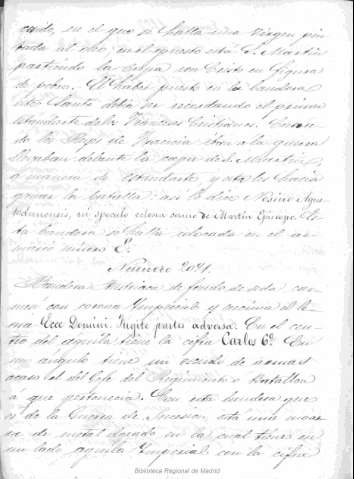 en el que se halla una Virgen pin
tada al oleo, en el opuesto está S. Martin
partiendo la Capa con Cristo en figura
de pobre. El haber puesto en la bandera
este Santo debia ser recordando el primer
estandarte de los Franceses Cristianos. Cuando
los Reyes de Francia iban a la guerra
llevaban delante la capa de S. Martin,
a manera de estandarte, y esto les hacia
ganar la batalla: asi lo dice
in speculo Martin Episcopo. Es
ta bandera se halla colocada en el ar
mero numero E.
Número 2021.
Bandera Austriaca de fondo de seda car
mesi con corona Imperial y encima el le
ma Ecce Domini. Fugite partes adversa. En el cen
tro del aguila tiene la cifra Carlos 6º. En
un angulo tiene un escudo de armas
acaso el del Gefe del Regimiento o Batallon
a que pertenecia. Con esta bandera que
es de la Guerra de Sucesion, está una
de metal dorado en la cual tiene en
un lado aguila Imperial con la cifra
Biblioteca Regional de Madrid